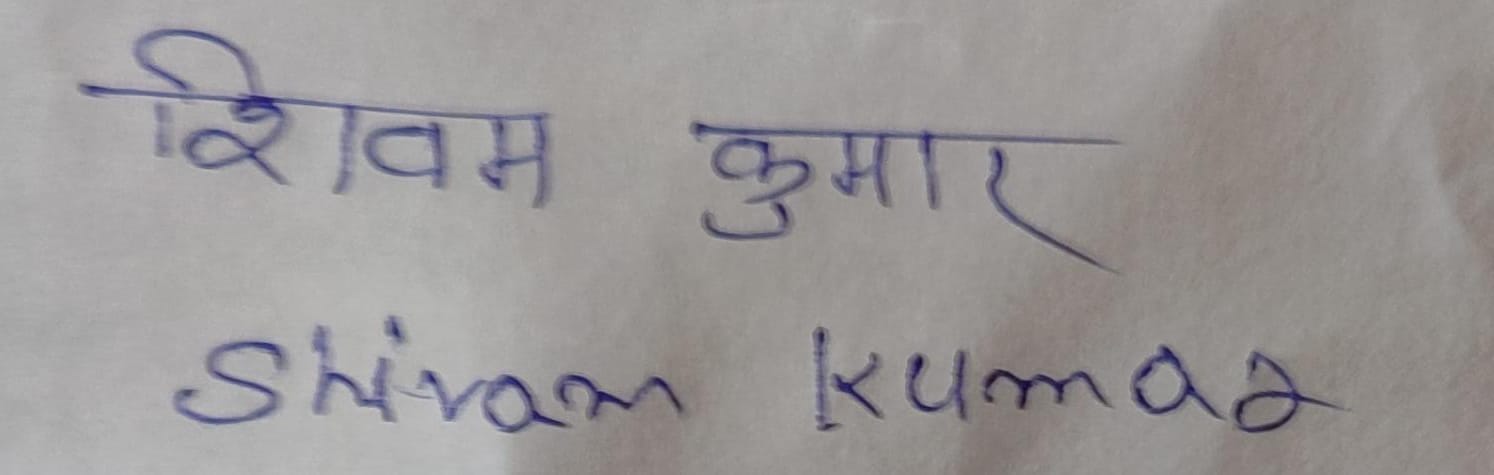 शिवम कुमार
Shivam Kumar